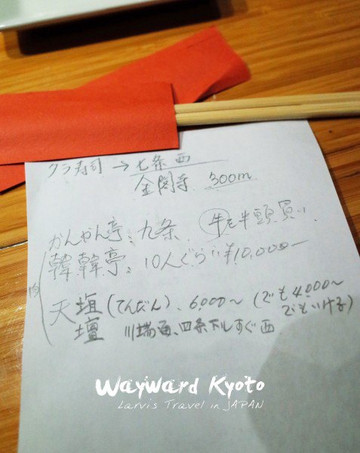 クラ寿司 → 七条西
金閣寺 300m
かんかん亭: 九条. 牛を半頭買い.
韓韓亭: 10人ぐらい ¥10,000-
肉
天塩 (てんだん). 6,000〜 (でも4,000〜
でもいける)
壇 川端西、四条下ルすぐ西
Wayward Kyoto
Larvi's Travel in JAPAN